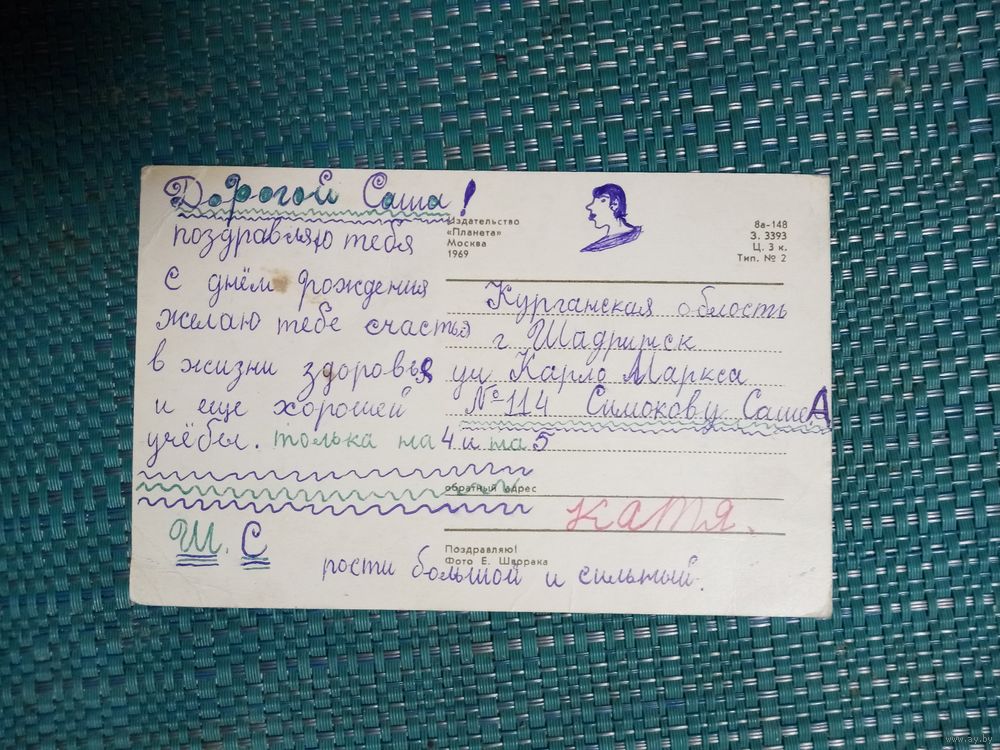 Дорогой Саша!
поздравляю тебя
с днём рождения
желаю тебе счастья
в жизни здоровья
и еще хорошей
учёбы. толька на 4 и на 5
Ш. С
рости большой и сильный.
Издательство
«Планета»
Москва
1969
8а-148
З. 3393
Ц. 3 к.
Тип. № 2
Курганская облость
г Шадринск
ул Карло Маркса
№ 114 Симокову СашеА
обратный адрес
Катя.
Поздравляю!
Фото Е. Шворака
www.ay.by